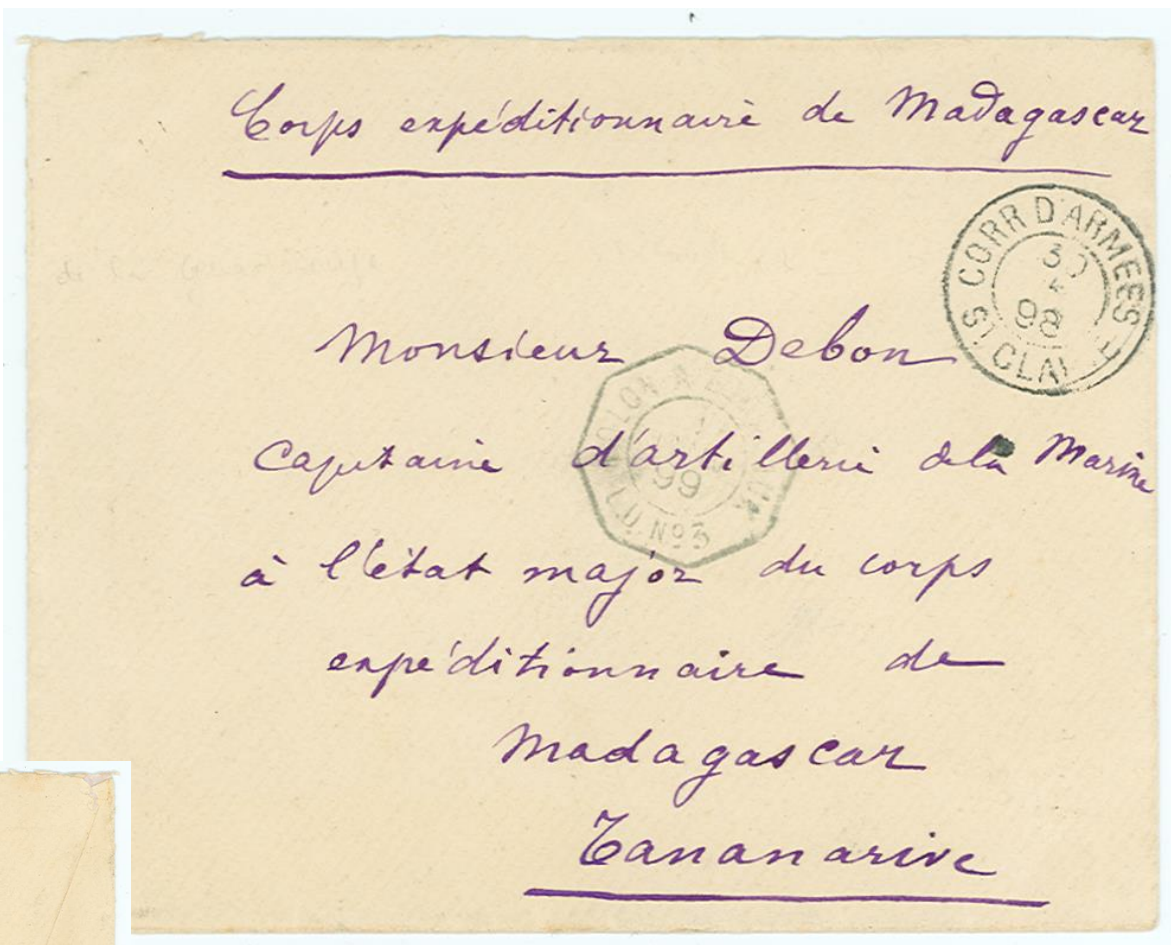 Corps expéditionnaire de Madagascar
CORR D'ARMEES
30
98
ST CLAI E
Monsieur Debon
COLON A BORD AUX
99
L.D. No 3
Capitaine d'artillerie de la Marine
à l'état major du corps
expéditionnaire de
Madagascar
Tananarive